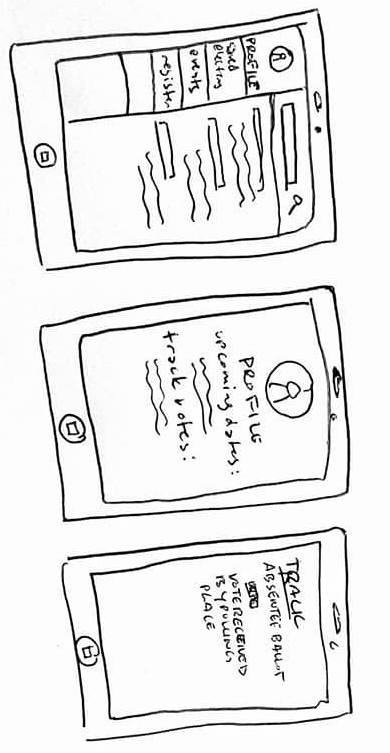 PROFILE
saved
elections
events
register
PROFILE
upcoming dates:
track votes:
TRACK
ABSENTEE BALLOT
VOTE RECEIVED
BY POLLING
PLACE